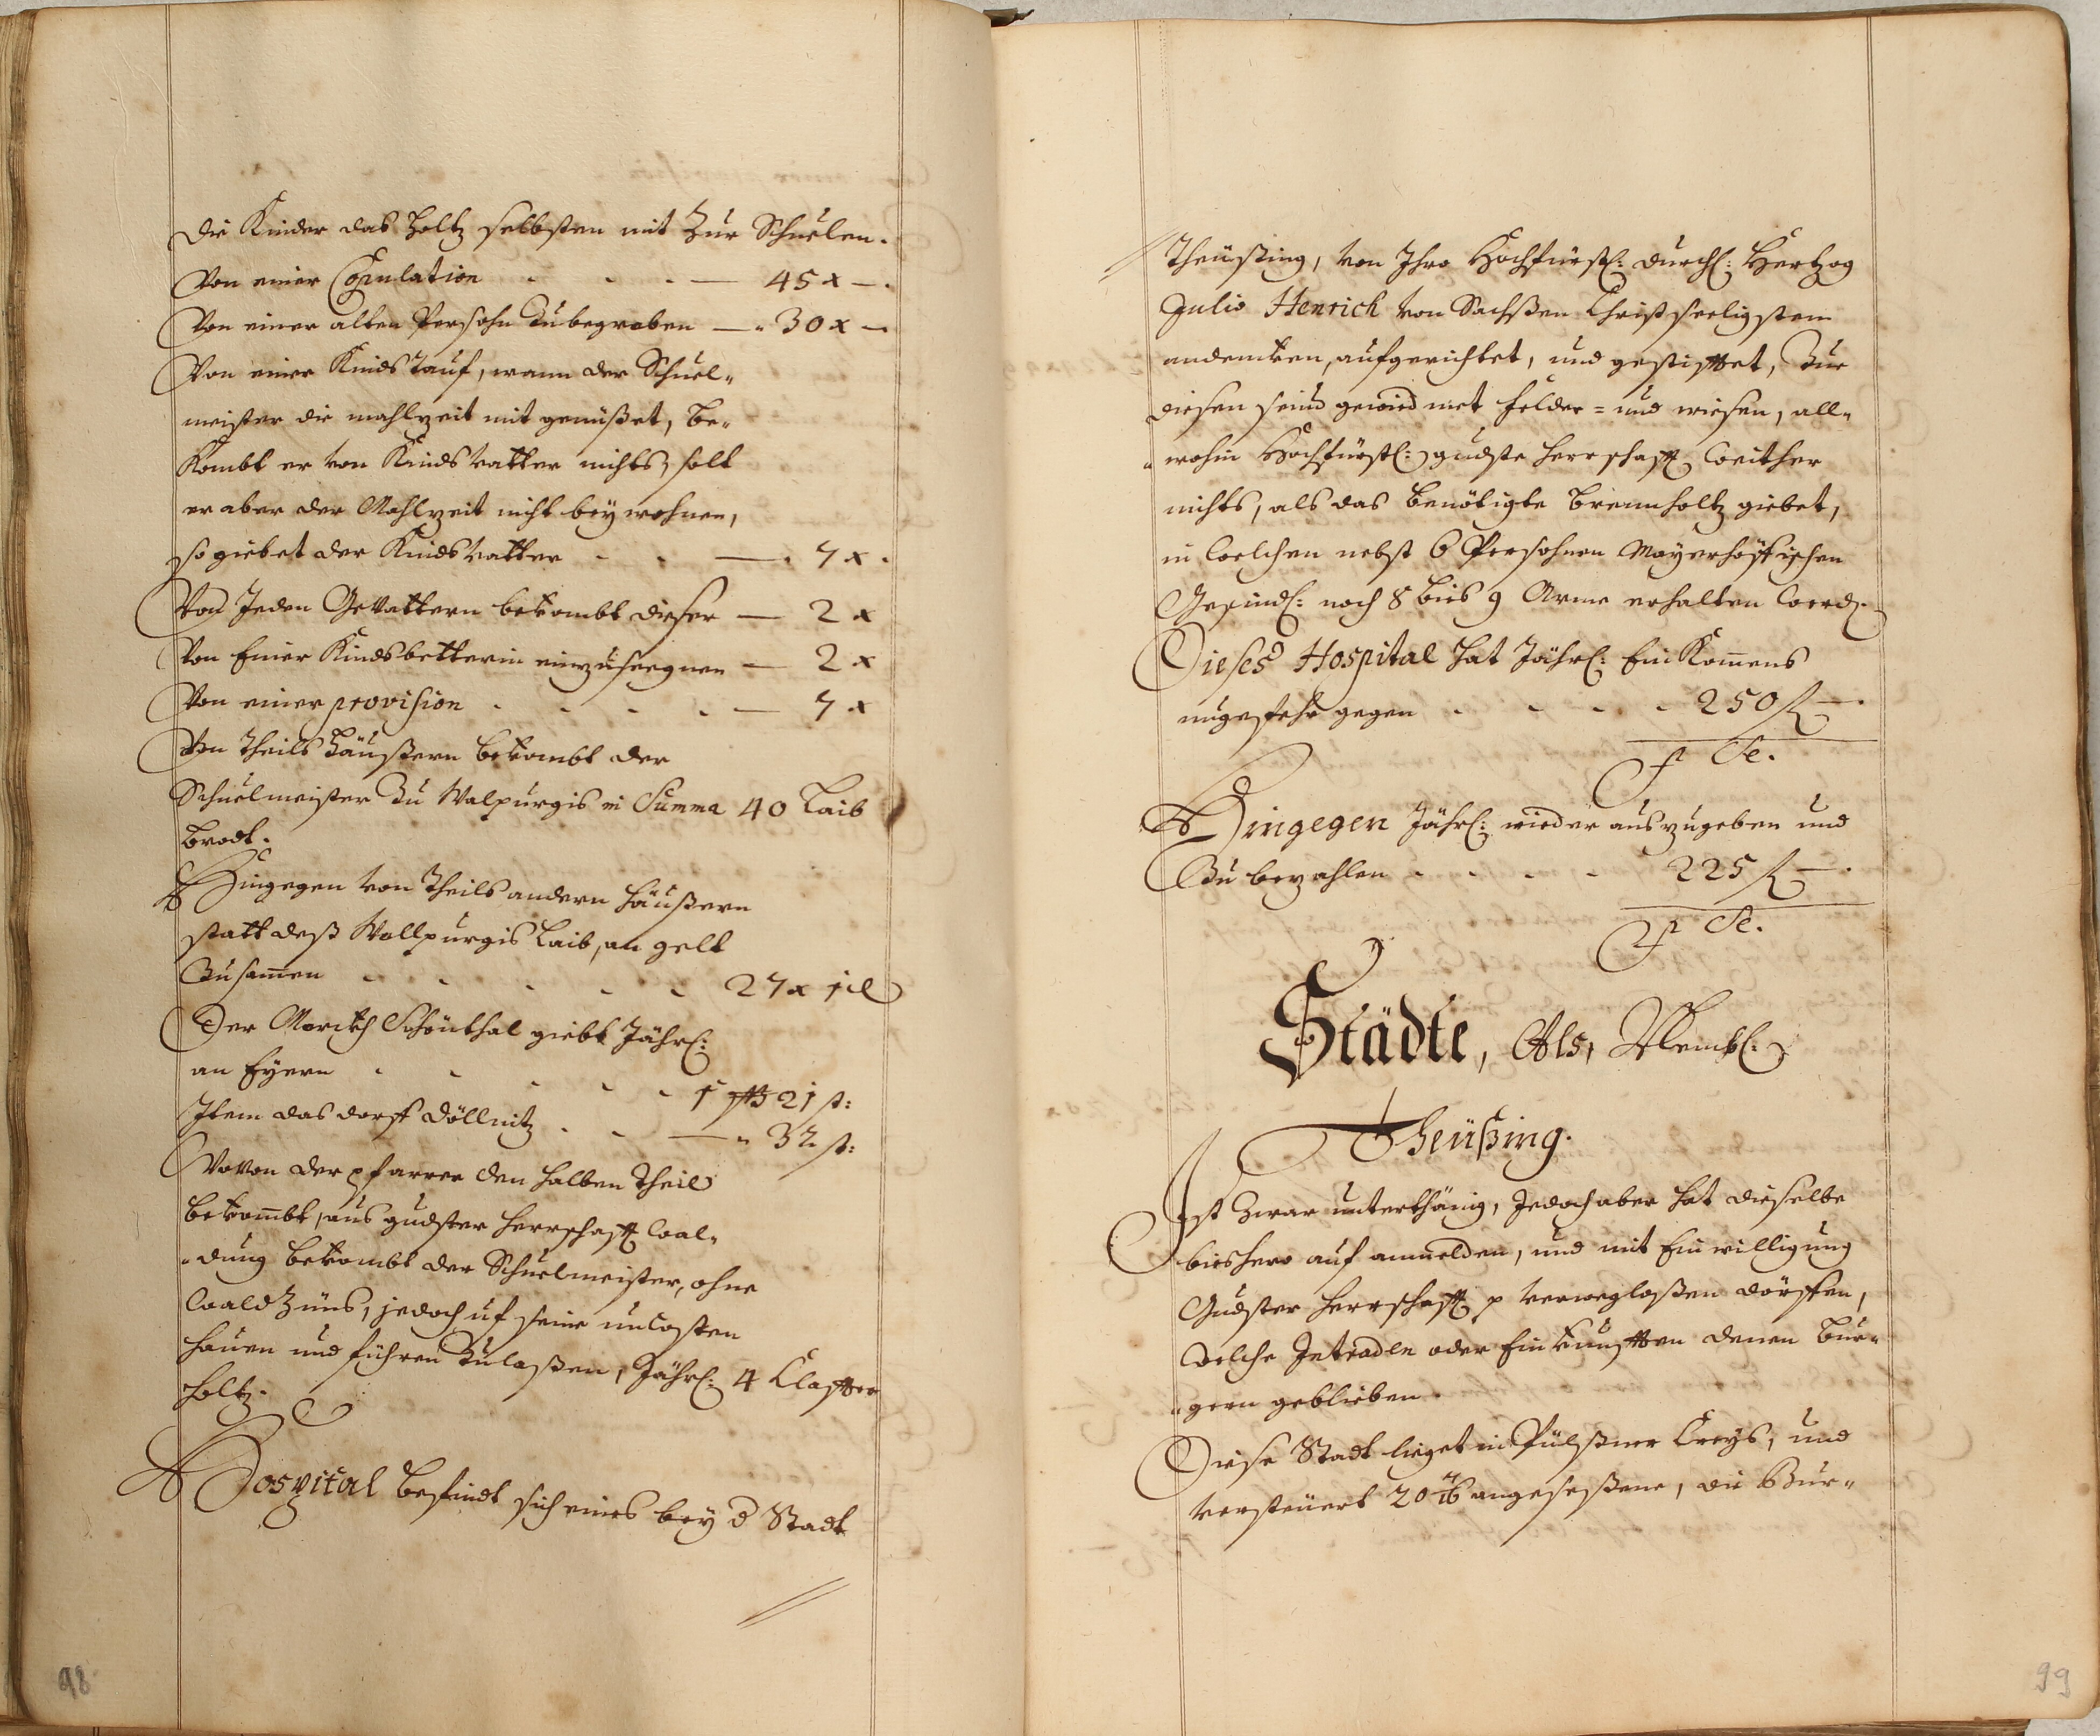 die Kinder das Holtz selbsten mit Zur Schuelen.
Von einer Copulation - - - — 45 x —.
Von einer alten Persohn Zubegraben — . 30 x —
Von einer Kinds Tauf, wann der Schuel„
meister die mahlzeit mit genüßet, be„
Kombt er von Kinds vatter nichts, solt
er aber der Mahlzeit nicht beywohnen,
so giebet der Kindsvatter - - — . 7 x .
Von Jeden Gevattern bekombt dieser — 2 x
Von Einer Kindsbetterin einzuseegnen — 2 x
Von einer provision - - - - — 7 x
Von Theils Häußern bekombt der
Schuelmeister Zu Walpurgis in Summa 40 Laib
Brodt.
Hingegen von Theils andern Häußern
statt deß Wallpurgis Laib, an gelt
Zusam̅en - - - - - 27 x
Der Marckh Schönthal giebt Jährl:
an Eyern - - - - - 1 ß 21 st:
Item das dorff Döllnitz - - — „ 32 st:
Wovon der pfarrer den halben Theil
bekom̅bt, aus gndster Herrschafft Wal„
„dung bekombt der Schuelmeister, ohne
Wald Züns, jedoch uf seine uncosten
hauen und führen Zulaßen, Jährl: 4 Claffter
holtz.
Hospital befindt sich eines bey d Stadt
98

Theüßing, von Ihro Hochfürstl: Durchl: Hertzog
Julio Henrich von Sachßen Christseeligsten
andencken, aufgerichtet, und gestifftet, Zue
diesen seind gewidmet felder = und wiesen, all„
„wohin Hochfürstl: gndste Herrschafft Weither
nichts, als das benötigte Brennholtz giebet,
in Welchen nebst 6 Persohnen Mayerhöffischen
Gesindl: noch 8 bies 9 Arme erhalten Werd.
Dieses Hospital hat Jährl: EinKom̅ens
ungefehr gegen - - - - 250 f —.
p Se.
Hingegen Jährl: wieder auszugeben und
Zu bezahlen - - - - 225 f —.
p Se.
Städte, Als, Nembl:
Theüßing.
Ist Zwar unterthänig, Jedoch aber hat dieselbe
bieshero auf anmelden, und mit Einwilligung
Gndster Herrschafft p verweglaßen dörffen,
Welche Intraden oder Einkunfften denen Bur„
„gern geblieben.
Diese Stadt lieget in Pülßner Creys, und
versteüert 20 angeseßene, die Bur„
99